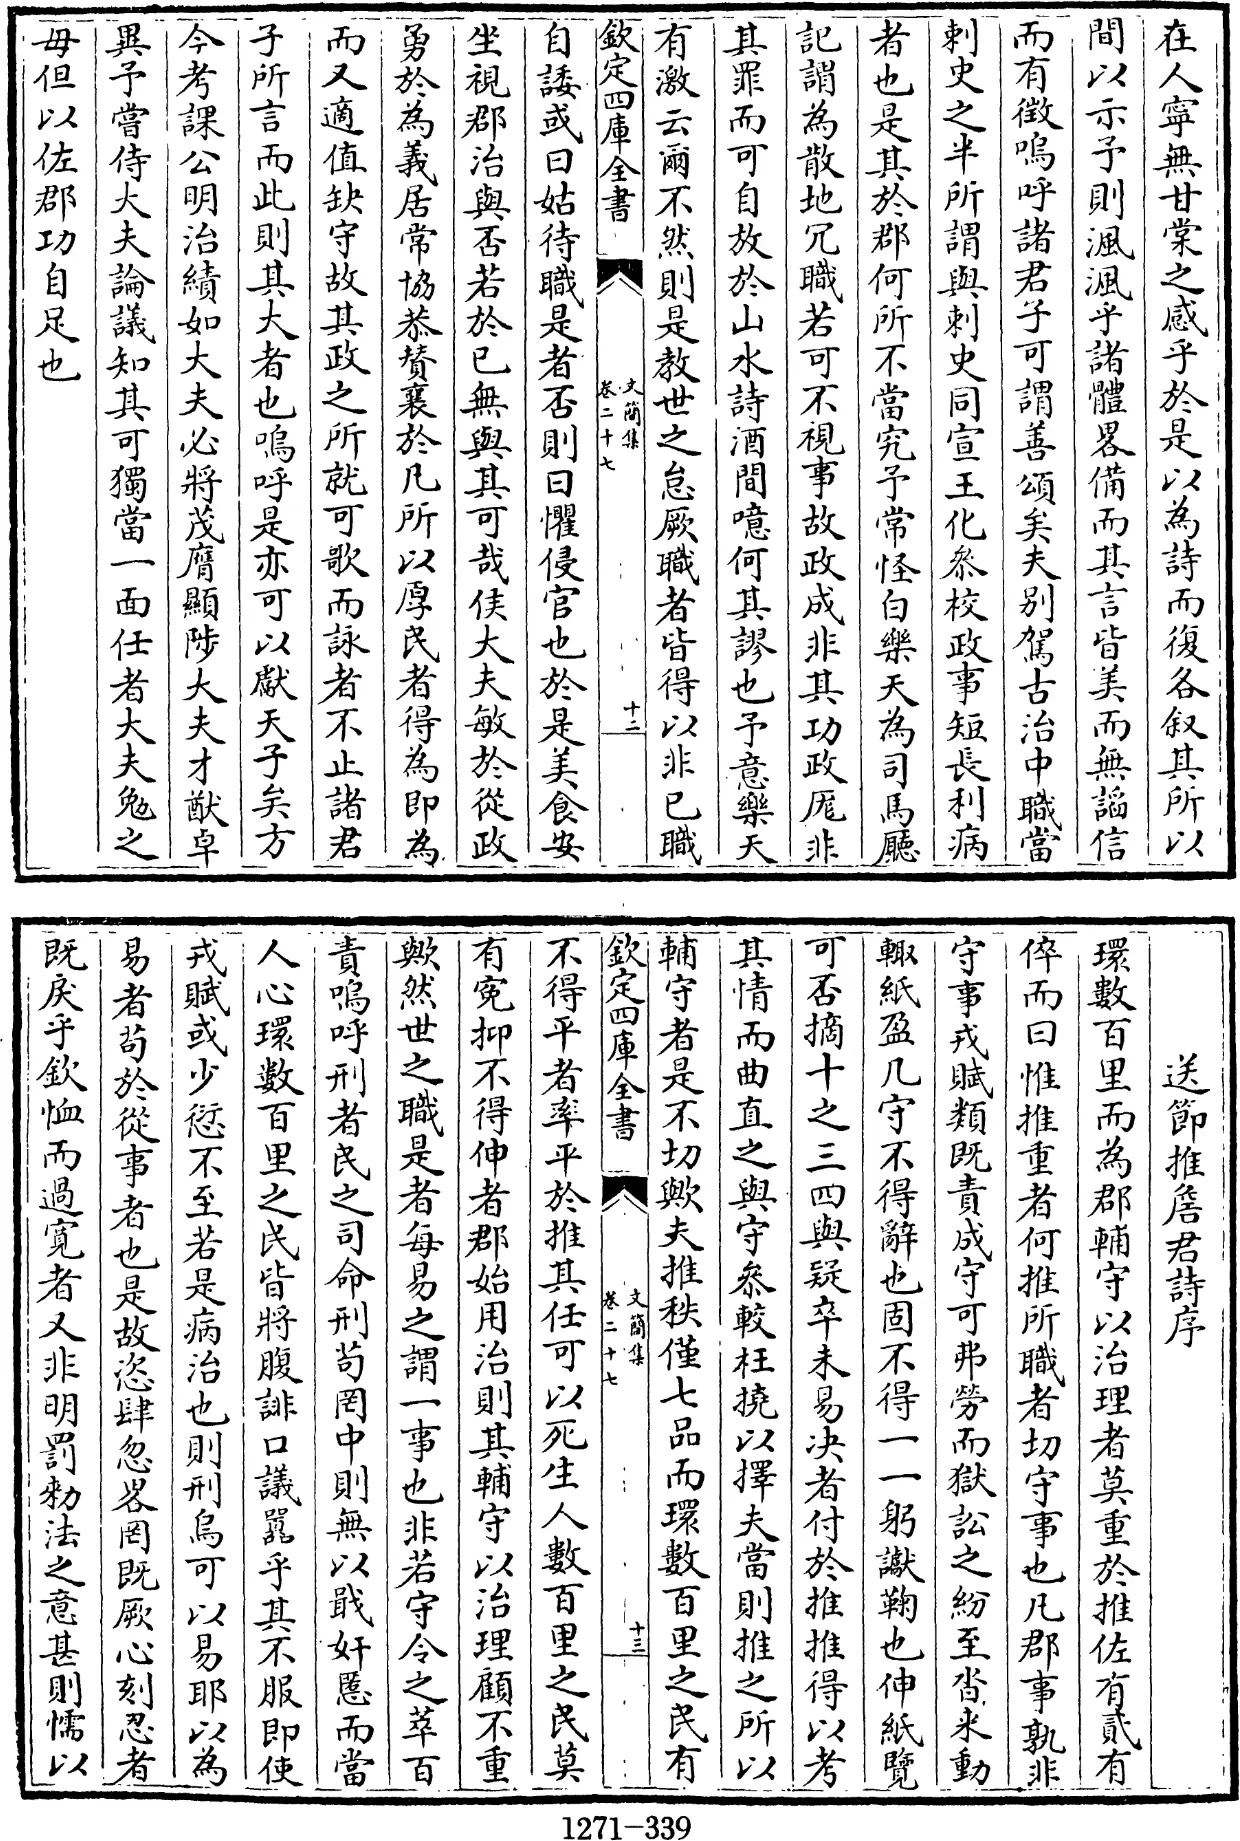 在人寧無甘棠之感乎於是以為詩而復各叙其所以
間以示予則渢渢乎諸體畧備而其言皆美而無諂信
而有徵嗚呼諸君子可謂善頌矣夫别駕古治中職當
刺史之半所謂與刺史同宣王化叅校政事短長利病
者也是其於郡何所不當究予常怪白樂天為司馬廳
記謂為散地冗職若可不視事故政成非其功政厖非
其罪而可自放於山水詩酒間噫何其謬也予意樂天
有激云爾不然則是教世之怠厥職者皆得以非已職
欽定四庫全書
文簡集
卷二十七
十二
自諉或曰姑待職是者否則曰懼侵官也於是美食安
坐視郡治與否若於已無與其可哉侯大夫敏於從政
勇於為義居常協恭贊襄於凡所以厚民者得為即為
而又適值缺守故其政之所就可歌而詠者不止諸君
子所言而此則其大者也嗚呼是亦可以獻天子矣方
今考課公明治績如大夫必將茂膺顯陟大夫才猷卓
異予嘗侍大夫論議知其可獨當一面任者大夫勉之
毋但以佐郡功自足也
送節推詹君詩序
環數百里而為郡輔守以治理者莫重於推佐有貳有
倅而曰惟推重者何推所職者切守事也凡郡事孰非
守事戎賦類既責成守可弗勞而獄訟之紛至沓來動
輙紙盈几守不得辭也固不得一一躬讞鞫也伸紙覽
可否摘十之三四與疑卒未易决者付於推推得以考
其情而曲直之與守叅較枉撓以擇夫當則推之所以
輔守者是不切歟夫推秩僅七品而環數百里之民有
欽定四庫全書
文簡集
卷二十七
十三
不得平者率平於推其任可以死生人數百里之民莫
有寃抑不得伸者郡始用治則其輔守以治理顧不重
歟然世之職是者每易之謂一事也非若守令之萃百
責嗚呼刑者民之司命刑茍罔中則無以戢奸慝而當
人心環數百里之民皆將腹誹口議囂乎其不服即使
戎賦或少愆不至若是病治也則刑烏可以易耶以為
易者茍於從事者也是故恣肆忽畧罔既厥心刻忍者
既戾乎欽恤而過寛者又非明罰勑法之意甚則懦以
1271-339